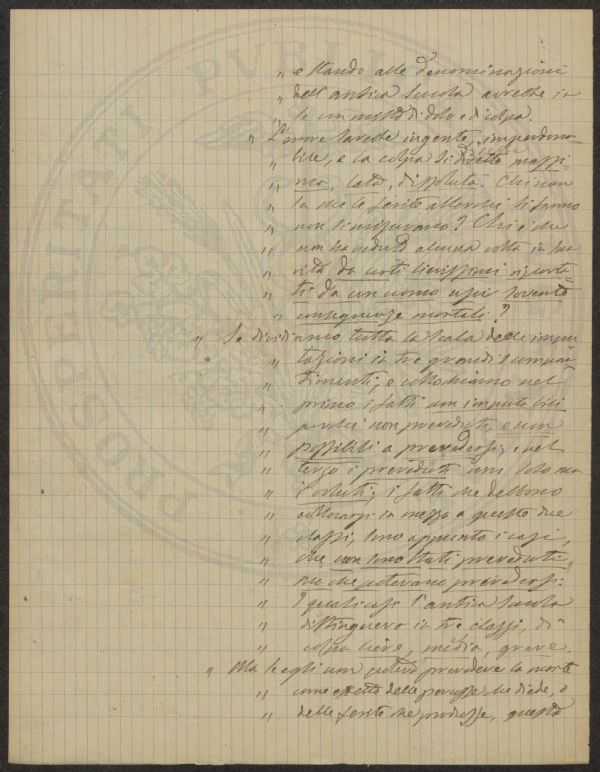 " e stando alle denominazioni
" dell'antica Scuola avrebbe in
" se un misto di dolo e di colpa.
" L'errore sarebbe ingente, imperdona-
" bile, e la colpa si direbbe massi-
" ma, lata, dissoluta. Chi non
" sa che le ferite allorché si fanno
" non si misurano? Chi è che
" non ha veduto alcuna volta in sua
" vita da
" ti da un uomo sovente
" conseguenze mortali?
" Se dividiamo tutta la scala delle impu-
" tazioni in tre grandi
" timenti, e collochiamo nel
" primo i fatti non imputabili
" perché non preveduti, e non
" possibili a prevedersi; e nel
" terzo i preveduti non solo ma
" i voluti; i fatti che debbono
" collocarsi in mezzo a queste due
" classi, sono appunto i casi,
" che non sono stati preveduti
" ma che potevano prevedersi:
" I quali casi l'antica Scuola
" distingueva in tre classi, di
" colpa lieve, media, grave.
" Ma se egli non poteva prevedere la morte
" come effetto delle percosse che diede, e
" delle ferite che produsse, questa
PROSPERITATI PUBLIC